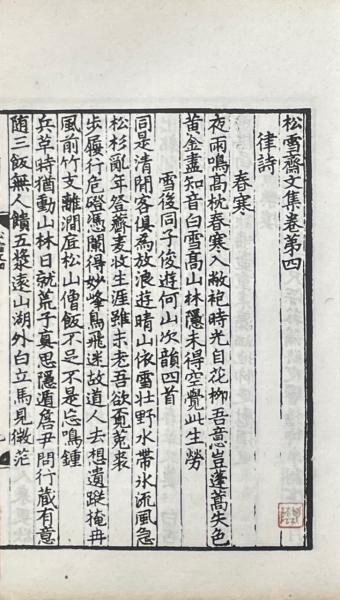 松雪齋文集卷第四
律詩
春寒
夜雨鳴高枕春寒入敝袍時光自花柳吾意豈蓬蒿失色
黃金盡知音白雪高山林隱未得空覺此生勞
雪後同子俊遊何山次韻四首
同是清閒客俱為放浪遊晴山依雪壯野水帶氷流風急
松杉亂年登薺麦收生涯雖未老吾欲覓菟裘
步屧行危磴憑闌得妙峰鳥飛迷故道人去想遺蹤掩冉
風前竹支離澗底松山僧飯不足不是忘鳴鍾
兵草時猶動山林日就荒子真思隱遁詹尹問行蔵有意
随三飯無人饋五漿遠山湖外白立馬見微茫